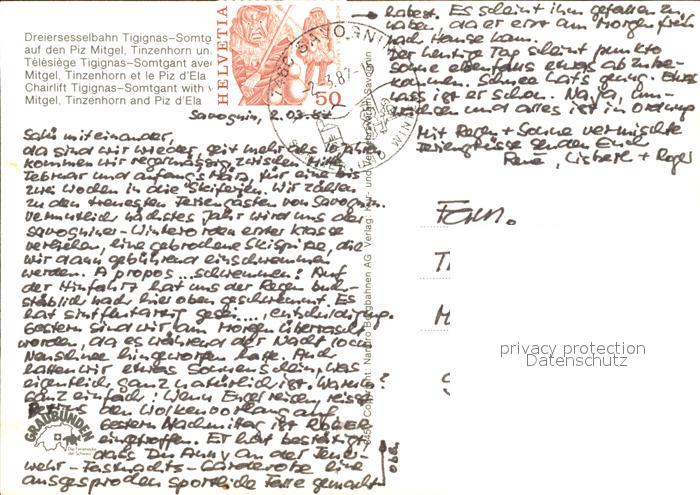 Dreiersesselbahn Tigignas–Somtg
auf den Piz Mitgel, Tinzenhorn un
Télésiège Tigignas–Somtgant avec
Mitgel, Tinzenhorn et le Piz d'Ela
Chairlift Tigignas–Somtgant with v
Mitgel, Tinzenhorn and Piz d'Ela
HELVETIA
50
SAVOGNIN
-2.-3.87-
Savognin, 2.03.87
Salü miteinander,
da sind wir wieder, seit mehr als 10 Jahren
kommen wir regelmässig zwischen Mitte
Februar und anfangs März, für eine bis
zwei Wochen in die Skiferien. Wir zählen
zu den treuesten Feriengästen von Savognin.
Vermutlich nächstes Jahr wird uns der
Savogniner-Winterorden erster Klasse
verliehen, eine gebrochene Skispitze, die
wir dann gebührend einschwemmen
werden. A propos ... schwemmen! Auf
der Hinfahrt hat uns der Regen buch-
stäblich nach hier oben geschwemmt. Es
hat sintflutartig gesei...., entschuldigung.
Gestern sind wir am Morgen überrascht
worden, da es während der Nacht 10cm
Neuschnee hingeworfen hatte. Auch
hatten wir etwas Sonnenschein, was
eigentlich ganz natürlich ist. Warum?
Ganz einfach! Wenn Engel reisen, reisst
Petrus den Wolkenvorhang auf,
Gestern Nachmittag ist Roger
eingetroffen. Er hat bestätigt,
dass Du Anny an der
wehr-Fastnachts-Garderobe eine
ausgesprochen sportliche Falle gemacht
oben
→ habest. Es scheint ihm gefallen zu
haben, da er erst am Morgen früh
nach Hause kam.
Der heutige Tag scheint punkto
Sonne ebenfalls etwas abzube-
kommen. Schnee hat's genug. Etwas
nass ist er schon. Na ja,
und alles ist in Ordnung
Mit Regen + Sonne vermischte
Feriengrüsse senden Euch
René, Lisbeth + Roger
Fam.
privacy protection
Datenschutz
GRAUBÜNDEN
Die Ferienecke
der Schweiz
Copyright: Nandro Bergbahnen AG Verlag: Kur- und Verkehrsverein Savognin